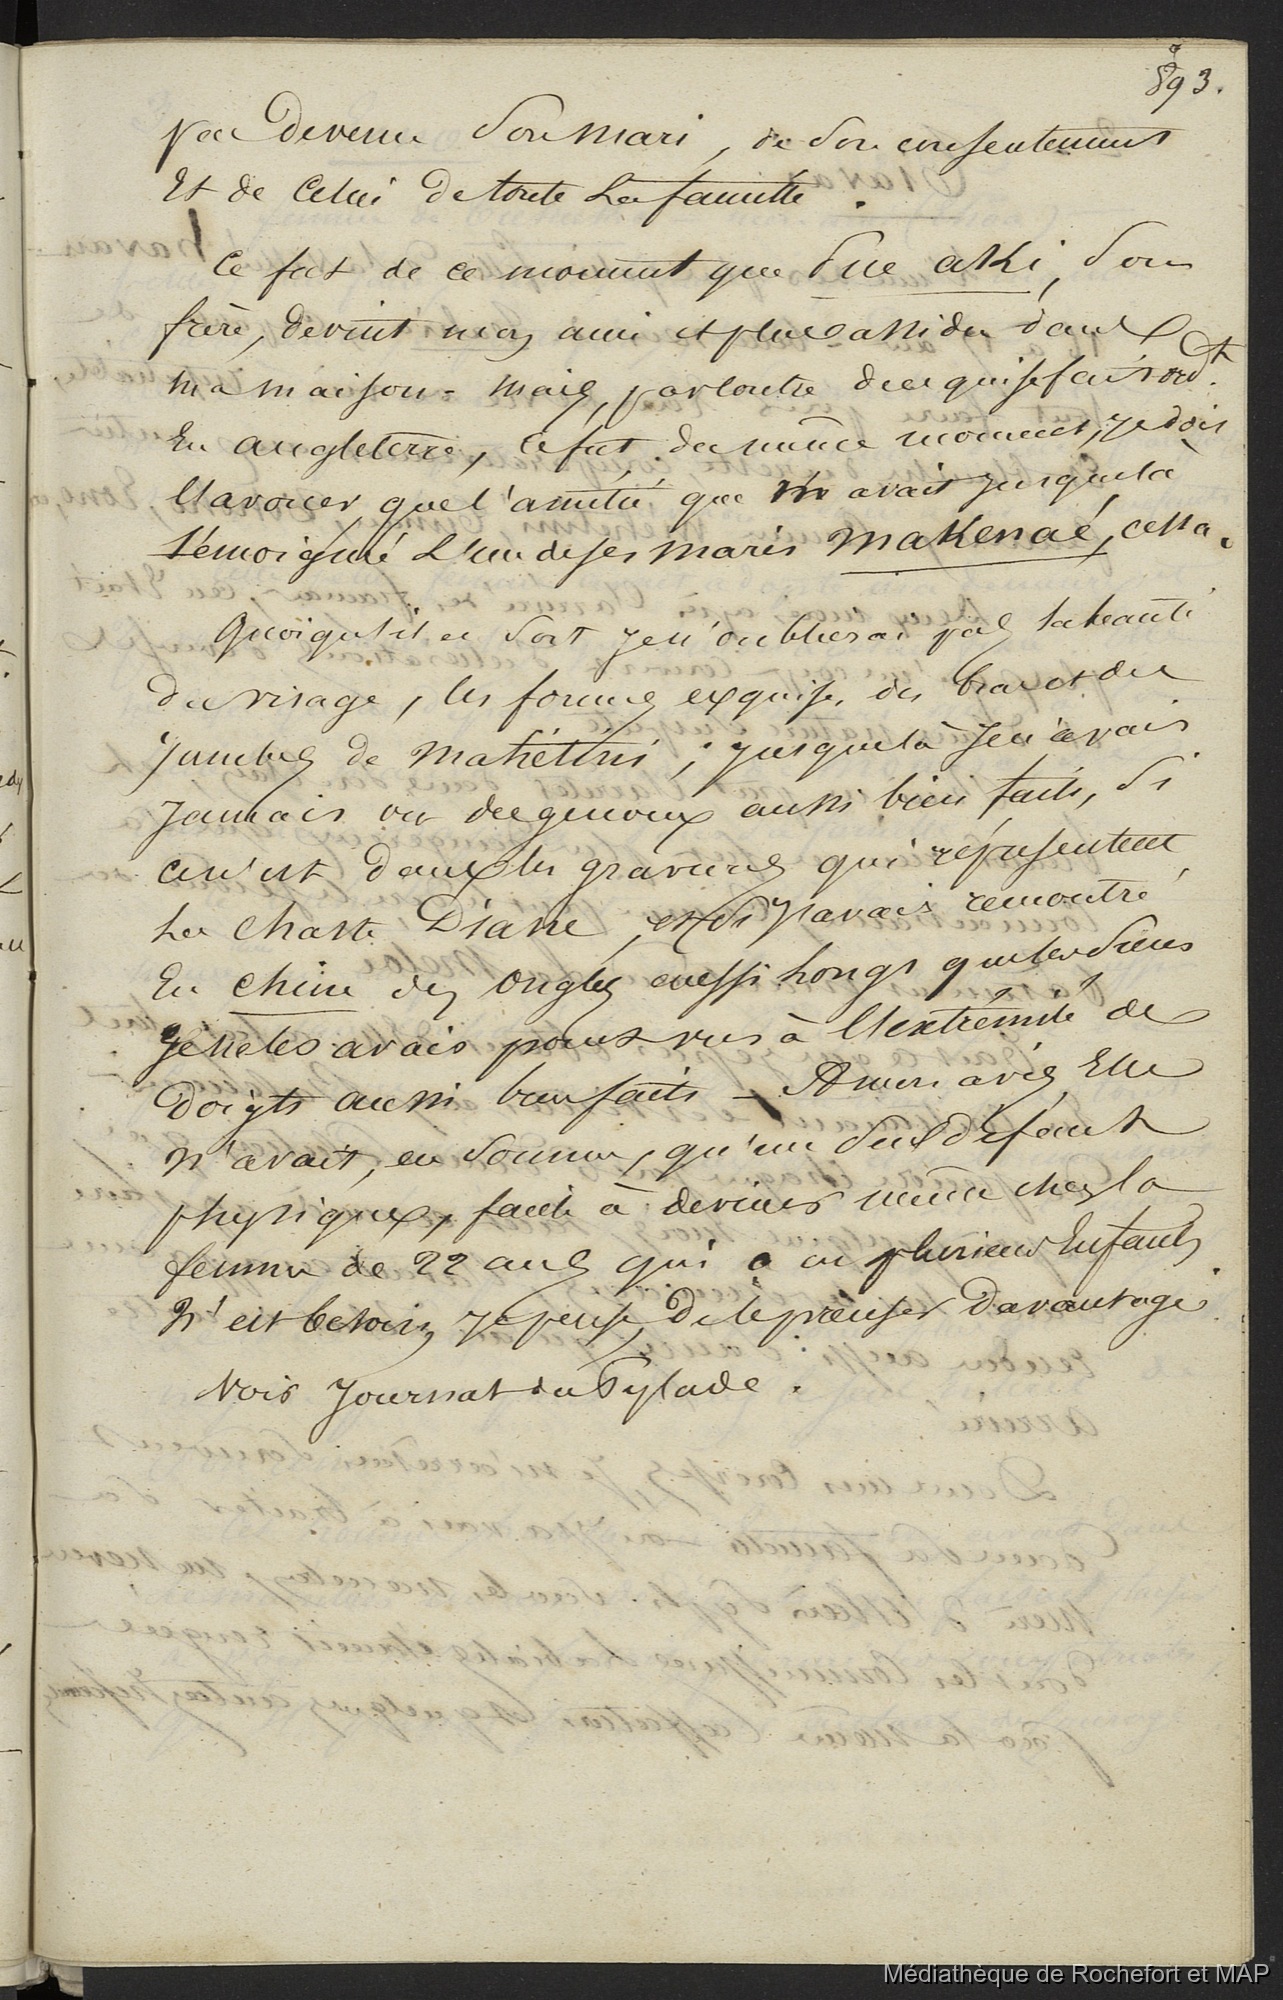 893.
pas devenu son mari, de son consentement
et de celui de toute la famille.
Ce fut de ce moment que aki, son
frère, devint mon ami et plus assidu dans
ma maison - mais, par contre de ce qui se fait ord.t
en angleterre, ce fut du même moment, je dois
l'avouer, que l'amitié que m'avait jusque là
témoigné l'un de ses maris makenaé, cessa.
Quoiqu'il en soit je n'oublierai pas la beauté
du visage, les formes exquises des bras et des
jambes de mahétini; jusque là je n'avais
jamais vu des genoux aussi bien faits, si
ce n'est dans les gravures qui représentent
la chaste Diane, et si j'avais rencontré
en chine des ongles aussi longs que les siens
je ne les avais point vus à l'extrémité de
doigts aussi bien faits - A mon avis, elle
n'avait, en somme, qu'un seul défaut
physique, facile à deviner même chez la
femme de 22 ans qui a eu plusieurs enfants,
n'est besoin, je pense, de le préciser davantage.
Vois journal du Pylade.
Médiathèque de Rochefort et MAP